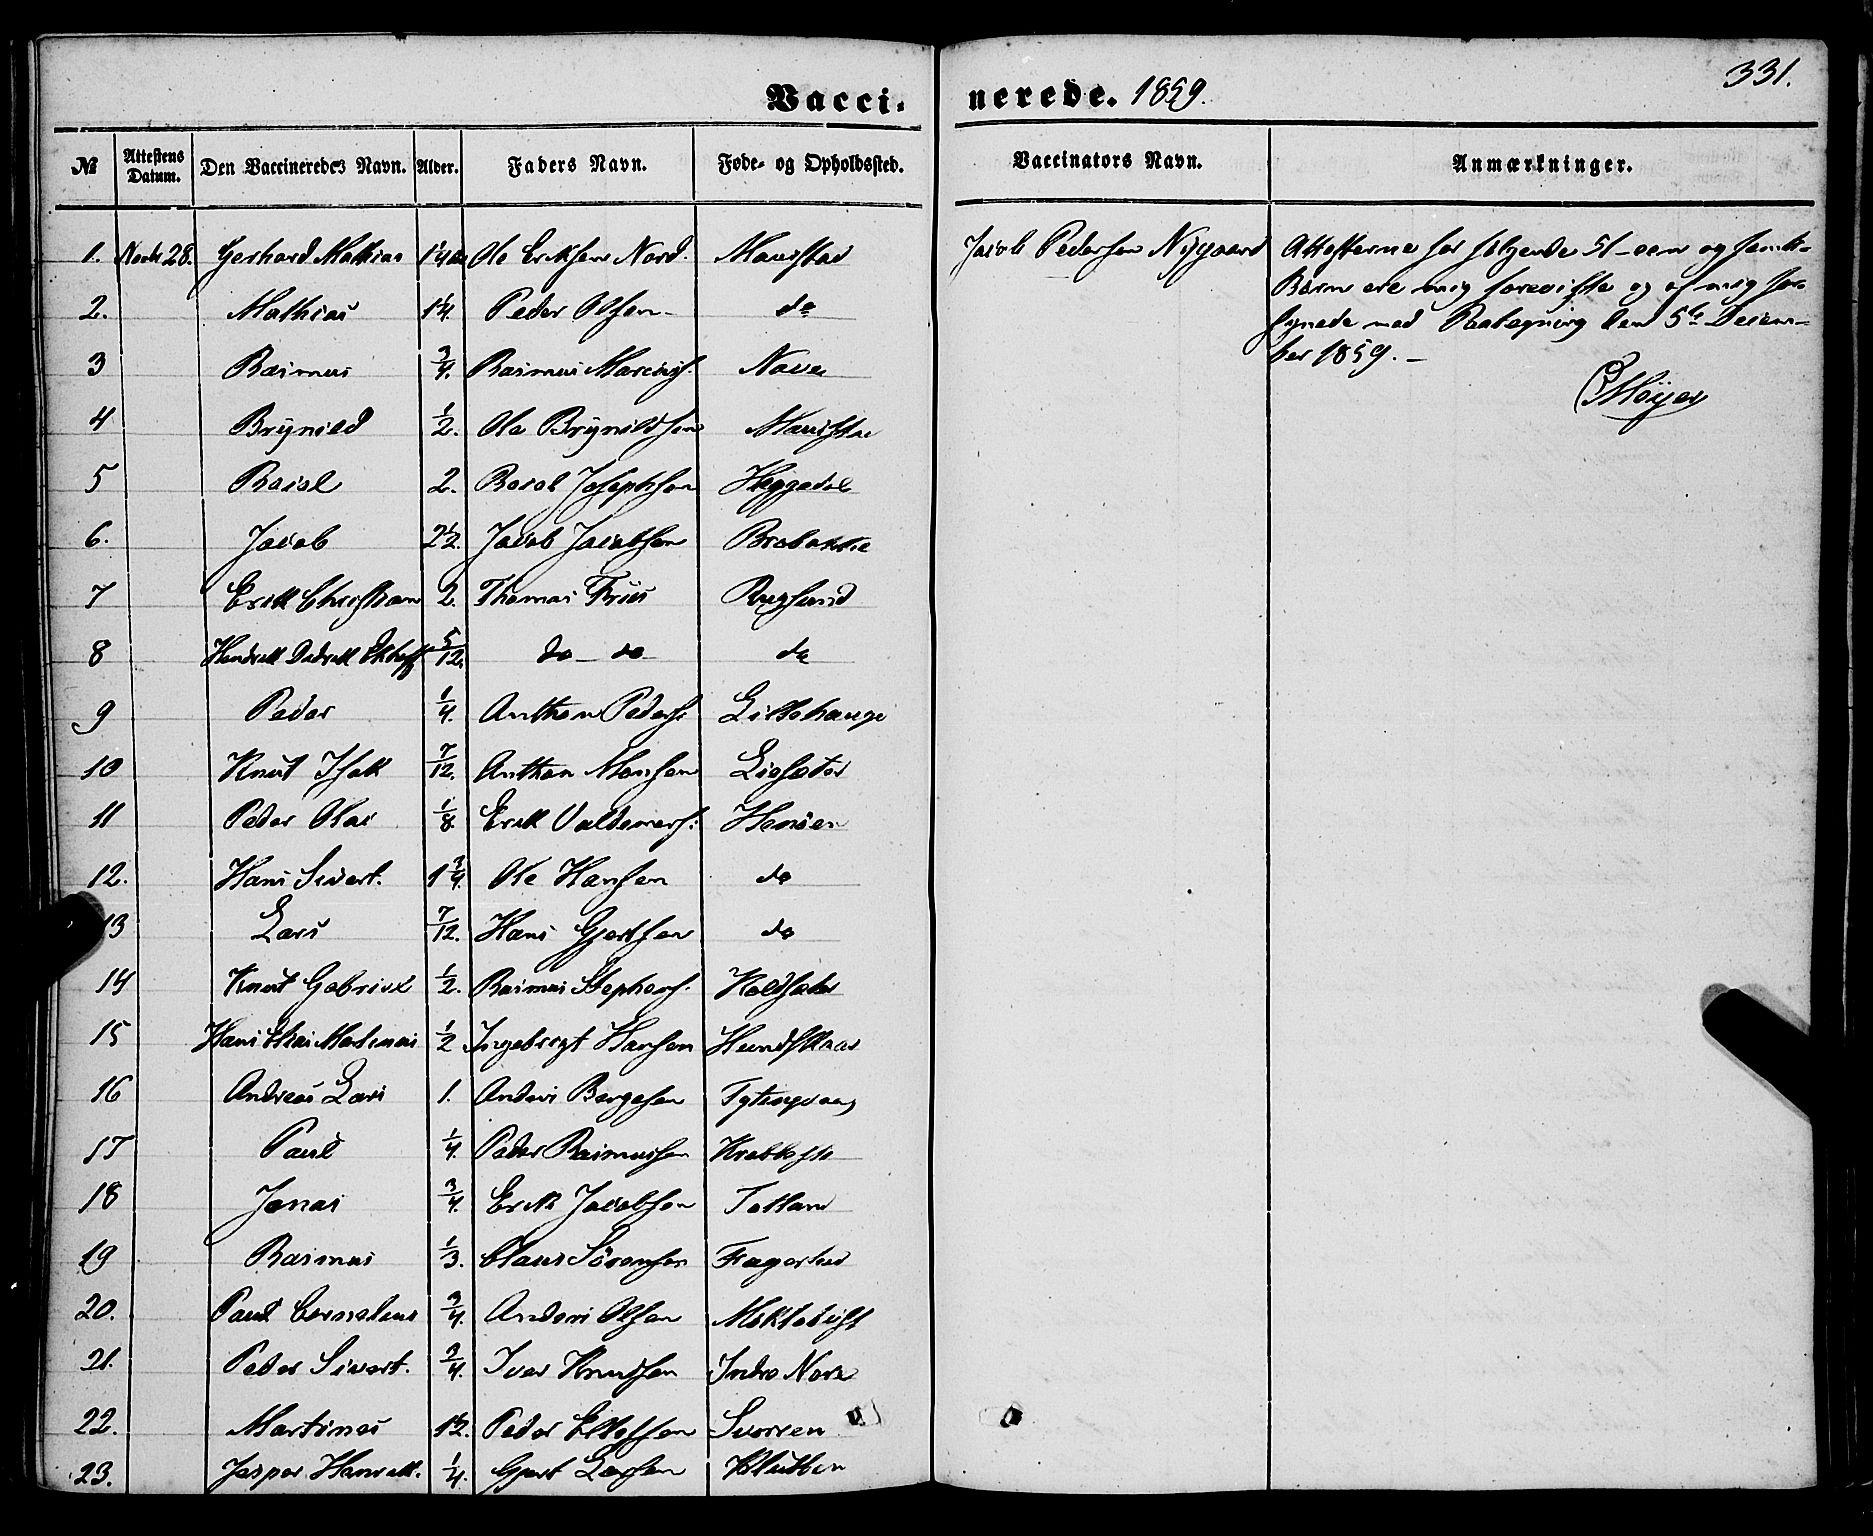 331.
Vacci- nerede. 1859.
№ Attestens Datum. Den Vaccineredes Navn. Alder. Faders Navn. Føde- og Opholdssted. Vaccinators Navn. Anmærkninger.
1. 28. Gerhard Mathias Ole Eriksen Nord. Maurstad Jacob Pedersen Nygaard Attesterne for følgende 51 - een og femti-
Børn ere mig foreviste og af mig for-
synede med Paategning den 5te Decem-
ber 1859. -
Møyer
2. Mathias 1¼. Peder Olsen do
3 Rasmus ¾. Rasmus Nave
4 Brynild ½. Ole Brynildsen Maurstad
5 Basal 2. Basal Josephsen Heggedal
6. Jacob 2½. Jacob Jacobsen
7 Erik Christian 2. Thomas Friis Rugsund
8 Hendrik Didrik 5/12. do - do do
9 Peder ¼. Anthon Peders: Lillehauge
10 Knut Isak 7/12. Anthon Monsen Liesæter
11 Peder Olai ⅛. Erik Valdemars: Henøen
12. Hans Sivert. 1¾. Ole Hansen do
13 Lars 7/12. Hans Gjertsen do
14 Knut Gabriel ½. Rasmus Stephens. Koldsæter
15 Hans Olai Martinus ½ Ingebrigt Hansen Hundskaar
16 Andreas Lars 1. Anders Børgesen
17 Paul ¼. Peder Rasmussen
18 Jonas ¾. Erik Jacobsen Totland
19 Rasmus ⅓. Claus Sørensen
20. Paul Cornelius ¾. Anders Olsen Myklebust
21. Peder Sivert. ¾. Iver Knudsen Indre Nore
22. Martinus 1½. Peder Ellefsen Svorren
23. Jesper Henrik. ¼. Gjert Larsen Klutten